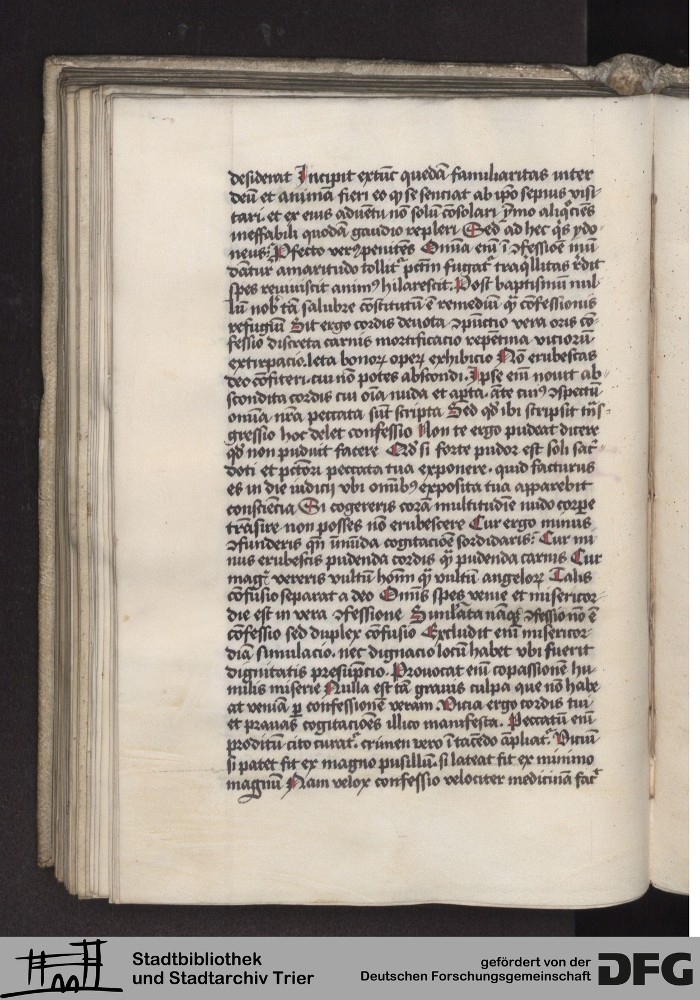 desiderat Incipit extūc quedā familiaritas inter
deū et animā fieri eo qͥ se senciat ab ip̄o sepius visi-
tari. et ex eius aduētu nō solū cōsolari ymo aliqͦciēs
ineffabili quodā gaudio repleri Sed ad hec qͥs ydo-
neus. Pfecto verꝰ penitēs Omīa eni ī ꝯfessiōe mū
dātur amaritudo tollitᷣ pctm̄ fugatᷣ trāqͥllitas rͤdit
spes reuiuiscit animꝰ hilarescit. Post baptismū nul-
lū nobᷤ tā salubre cōstitutū ē remediū qͣ cōfessionis
refugiū Sit ergo cordis deuota ꝯpūctio vera oris cō-
fessio discreta carnis mortificacio repetina vitiorū
extirpacio. leta bonoꝝ opeꝝ exhibicio Nō erubescas
deo cōfiteri. cui nō potes abscondi. Ipse eni nouit ab-
scondita cordis cui oīa nuda et apͭta. āte cuiꝰ ꝯspectū
omīa nr̄a peccata sūt scripta Sed qͦd ibi scripsit tnͣs-
gressio hoc delet confessio Non te ergo pudeat dicere
qͦd non puduit facere Qd si forte pudor est soli sacͬ-
doti et pctōri peccata tua exponere. quid facturus
es in die iudicij vbi omībꝰ exposita tua apparebit
consciēcia Si cogereris corā multitudīe nudo corꝑe
trāsire non posses nō erubescere Cur ergo minus
ꝯfunderis qn̄ īmūda cogitacioē sordidaris. Cur mi
nus erubescis pudenda cordis qͣ pudenda carnis Cur
magᷤ vereris vultū hoīm qͣ vultū angeloꝝ Talis
cōfusio separat a deo Omīs spes venie et misericor-
die est in vera ꝯfessione Simulata nāqꝫ ꝯfessio nō ē
cōfessio sed duplex cōfusio Excludit eni misericor-
diā simulacio. nec dignacio locū habet vbi fuerit
dignitatis presūpcio. Prouocat eni cōpassionē hu-
milis miserie Nulla est tā grauis culpa que nō habe
at veniā ꝑ confessionē veram. Vicia ergo cordis tui
et prauas cogitacioēs illico manifesta. Peccatū eni
proditū cito curatᷣ. crimen vero ī tacēdo āpliatᷣ. Viciū
si patet fit ex magno pusillū. si lateat fit ex minimo
magnū Nam velox confessio velociter medicinā facͭ
Stadtbibliothek
und Stadtarchiv Trier
gefördert von der
Deutschen Forschungsgemeinschaft
DFG